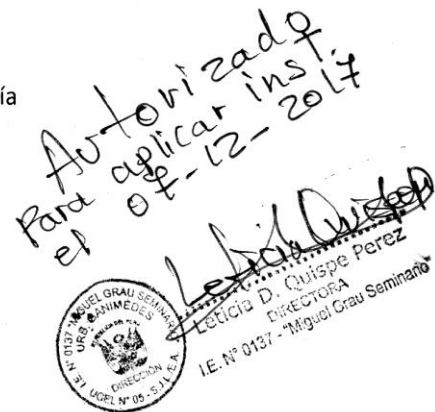 ía
Autorizado
Para aplicar inst.
el 07-12-2017
Leticia Quispe P
Leticia D. Quispe Perez
DIRECTORA
I.E. N° 0137 - "Miguel Grau Seminario"
I.E. N° 0137 "MIGUEL GRAU SEMINARIO"
URB. GANIMEDES
REPUBLICA DEL PERU
DIRECCIÓN
UGEL N° 05 - S.J.L./E.A.